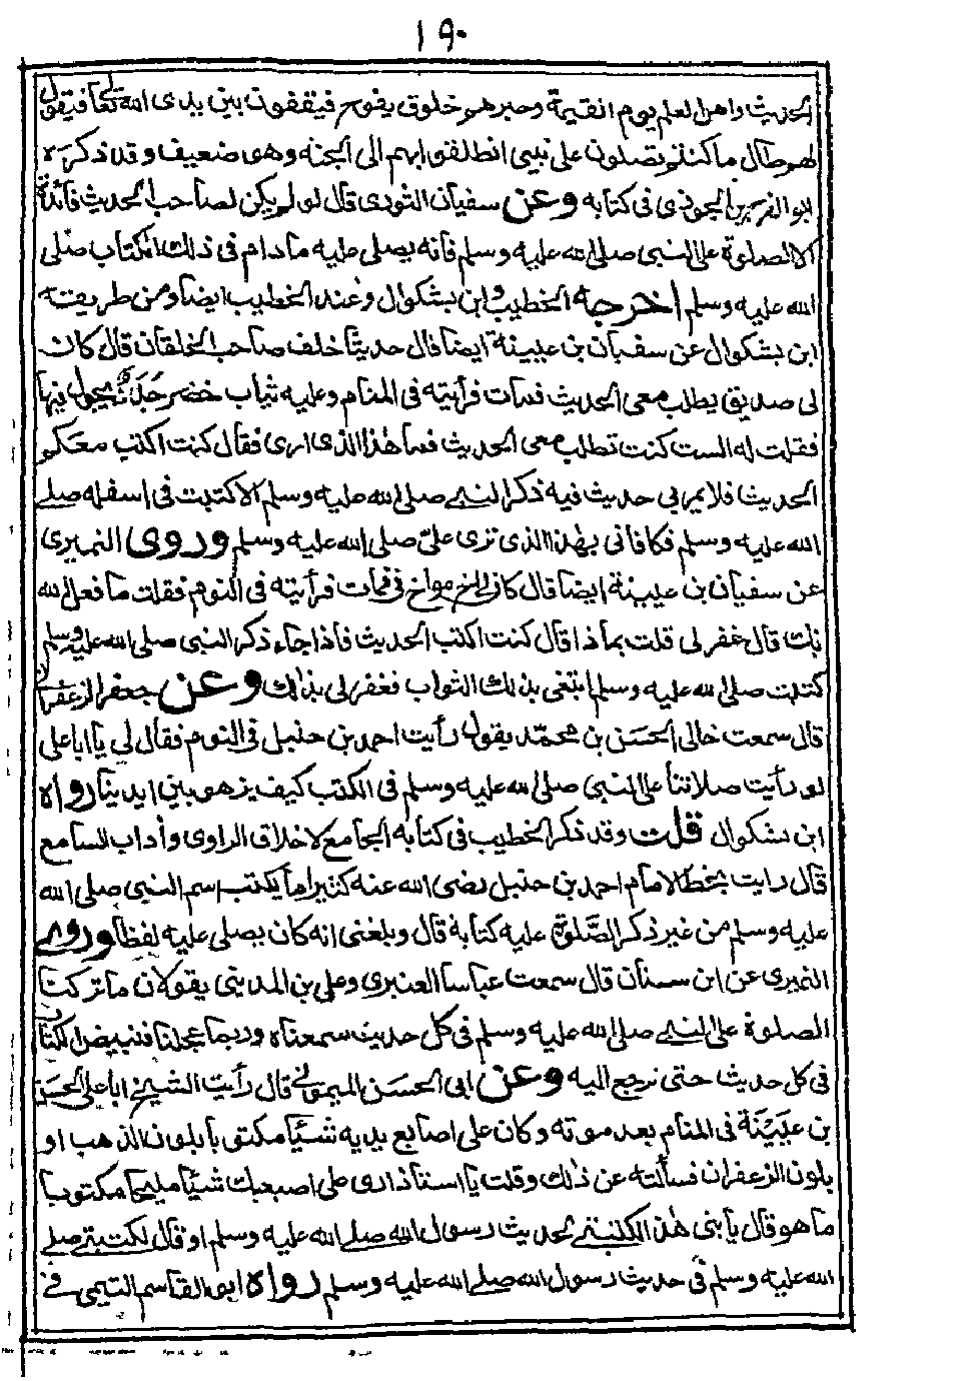 ١٩٠
الحديث واهل العلم يوم القيمة وحبرهم خلوق يفوح فيقفون بين يدى الله تعا فيقول
لهم طال ما كنتم تصلون على نبيى انطلقوا بهم الى الجنة وهى ضعيف وقد ذكره
ابو الفرج بن الجوزى فى كتابه وعن سفيان الثورى قال لو لم يكن لصاحب الحديث فائدة
الا الصلوة على النبى صلى الله عليه وسلم فانه يصلى عليه ما دام فى ذلك الكتاب صلى
الله عليه وسلم اخرجه الخطيب وابن بشكوال وعند الخطيب ايضا ومن طريقته
ابن بشكوال عن سفيان بن عيينة ايضا قال حديثا خلف صاحب الخلقان قال كان
لى صديق يطلب معى الحديث فمات فرأيته فى المنام وعليه ثياب خضر جدد يجول فيها
فقلت له الست كنت تطلب معى الحديث فما هذا الذى ارى فقال كنت اكتب معكم
الحديث فلا يمر بى حديث فيه ذكر النبى صلى الله عليه وسلم الا كتبت فى اسفله صلى
الله عليه وسلم فكافانى بهذا الذى ترى علىّ صلى الله عليه وسلم وروى النميرى
عن سفيان بن عيينة ايضا قال كان لى اخ مواخ فى فمات فرأيته فى النوم فقلت ما فعل الله
بك قال غفر لى قلت بماذا قال كنت اكتب الحديث فاذا جاء ذكر النبى صلى الله عليه وسلم
كتبت صلى الله عليه وسلم ابتغى بذلك الثواب فغفر لى بذلك وعن جعفر الزعفرانى
قال سمعت خالى الحسن بن محمد يقول رأيت احمد بن حنبل فى النوم فقال لي يا ابا على
لو رأيت صلاتنا على النبى صلى الله عليه وسلم فى الكتب كيف يزهو بين ايدينا رواه
ابن بشكوال قلت وقد ذكر الخطيب فى كتابه الجامع لاخلاق الراوى وأداب السامع
قال رايت بخط الامام احمد بن حنبل رضى الله عنه كثيرا ما يكتب اسم النبى صلى الله
عليه وسلم من غير ذكر الصلوة عليه كتابة قال وبلغنى انه كان يصلى عليه لفظا وروى
النميرى عن ابن سنان قال سمعت عباسا العنبرى وعلى بن المدينى يقولان ما تركنا
الصلوة على النبى صلى الله عليه وسلم فى كل حديث سمعناه وربما عجلنا فنبيض الكتاب
فى كل حديث حتى نرجع اليه وعن ابى الحسن الميمونى قال رأيت الشيخ ابا على الحسن
بن عيينة فى المنام بعد موته وكان على اصابع يديه شئيا مكتوبا بلون الذهب او
بلون الزعفران فسألته عن ذلك وقلت يا استاذ ارى على اصبعك شئيا مليحا مكتوبا
ما هو قال يا بنى هذا لكتبتى لحديث رسول الله صلى الله عليه وسلم او قال لكتبتى صلى
الله عليه وسلم فى حديث رسول الله صلى الله عليه وسلم رواه ابو القاسم التيمى فى